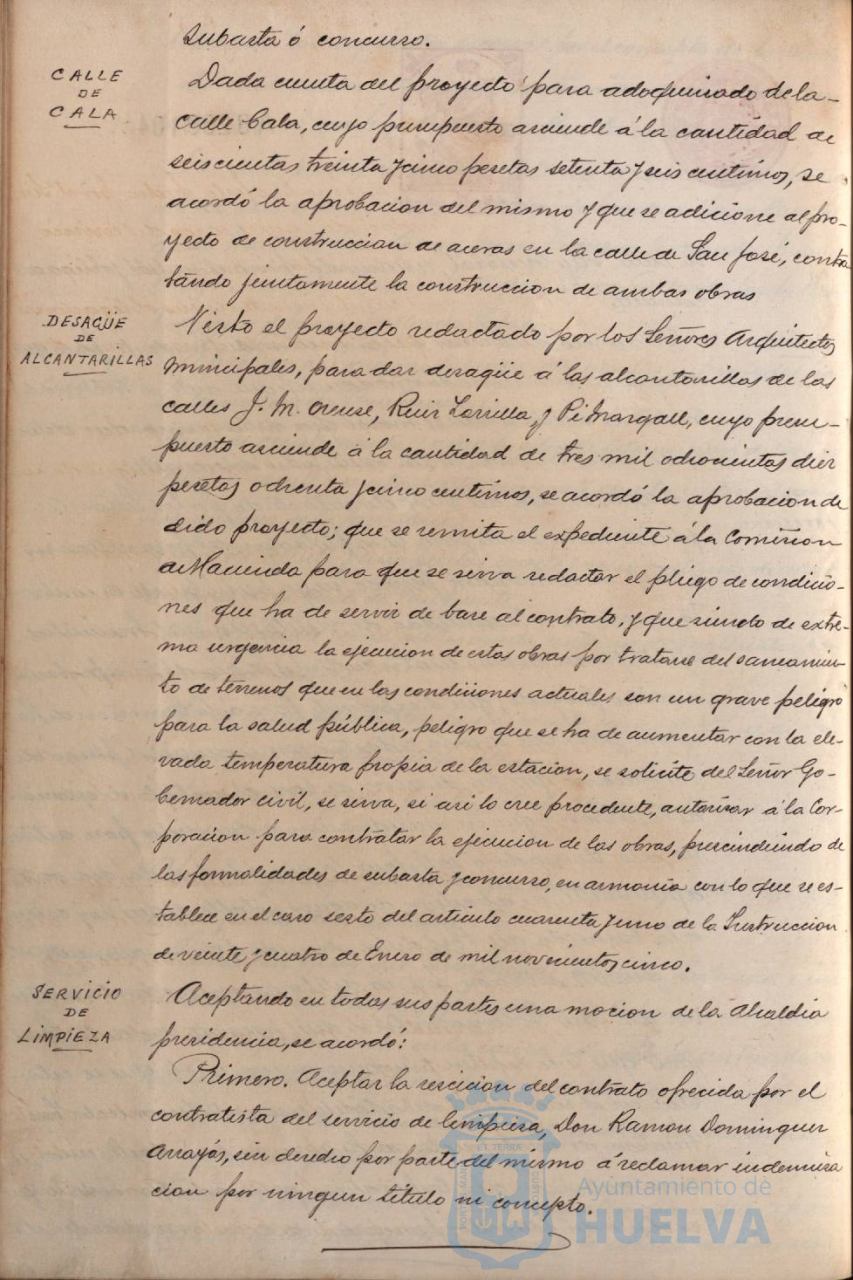 subasta ó concurso.
CALLE
DE
CALA
Dada cuenta del proyecto para adoquinado de la
calle Cala, cuyo presupuesto asciende á la cantidad de
seiscientas treinta y cinco pesetas setenta y seis centimos, se
acordó la aprobacion del mismo y que se adicione al pro-
yecto de construccion de aceras en la calle de San José, contra
tando juntamente la construccion de ambas obras
DESAGÜE
DE
ALCANTARILLAS
Visto el proyecto redactado por los Señores Arquitectos
municipales, para dar desagüe á las alcantarillas de las
calles J. M. Orense, Ruiz Zorrilla, y Pi Margall, cuyo presu-
puesto asciende á la cantidad de tres mil ochocientas diez
pesetas ochenta y cinco centimos, se acordó la aprobacion de
dicho proyecto; que se remita el expediente á la Comision
de Hacienda para que se sirva redactar el pliego de condicio-
nes que ha de servir de base al contrato, y que siendo de extre-
ma urgencia la ejecucion de estas obras por tratarse del saneamien-
to de terrenos que en las condiciones actuales son un grave peligro
para la salud pública, peligro que se ha de aumentar con la ele-
vada temperatura propia de la estacion, se solicite del Señor Go-
bernador civil, se sirva, si asi lo cree procedente, autorizar á la Cor-
poracion para contratar la ejecucion de las obras, prescindiendo de
las formalidades de subasta y concurso, en armonia con lo que se es-
tablece en el caso sesto del articulo cuarenta y uno de la Instruccion
de veinte y cuatro de Enero de mil novecientos cinco.
SERVICIO
DE
LIMPIEZA
Aceptando en todas sus partes una mocion de la Alcaldia
presidencia, se acordó:
Primero. Aceptar la rescicion del contrato ofrecida por el
contratista del servicio de limpieza, Don Ramon Dominguez
Arrayás, sin derecho por parte del mismo á reclamar indemniza
cion por ningun titulo ni concepto.
Ayuntamiento de
HUELVA